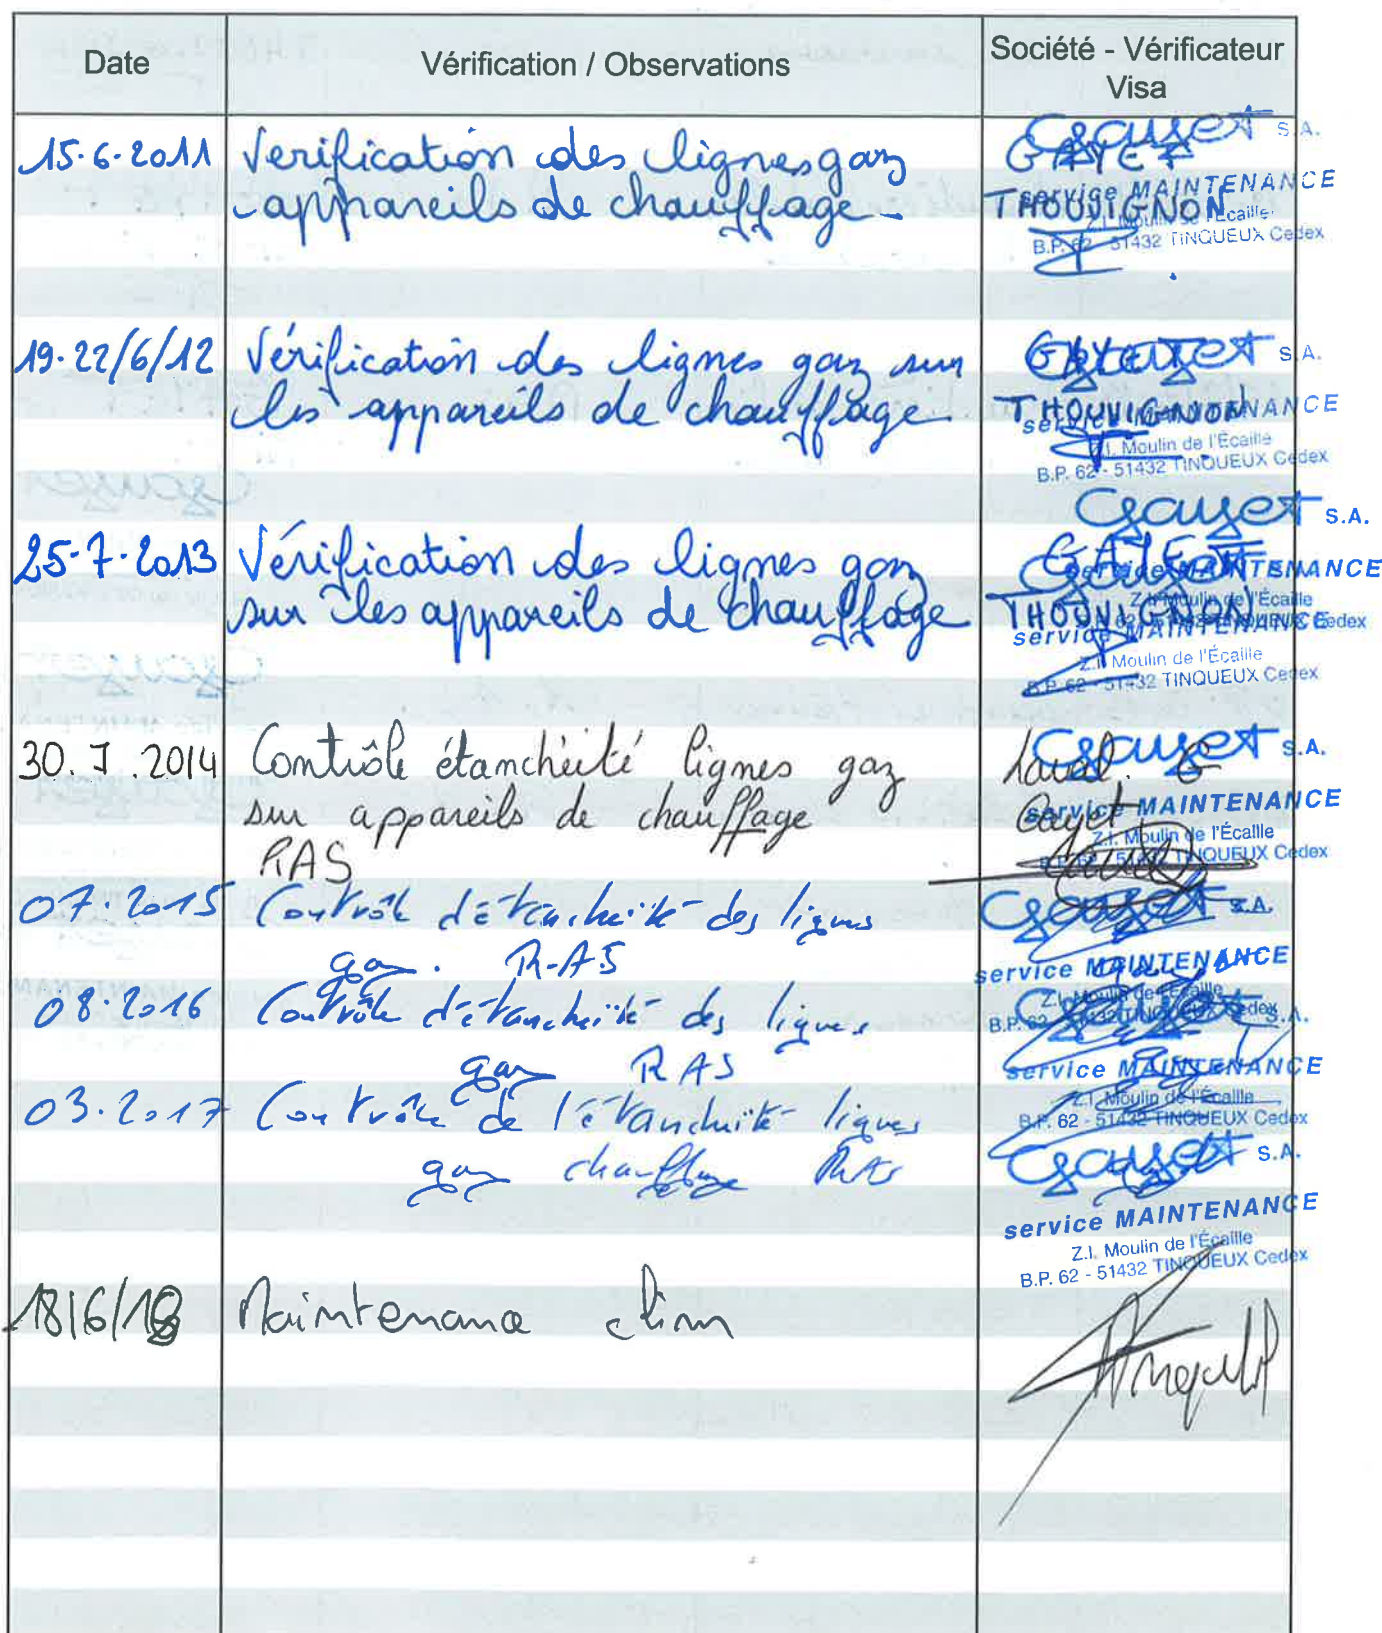 Date
Vérification / Observations
Société - Vérificateur
Visa
15.6.2011
Verification des lignes gaz
appareils de chauffage -
Gayet S.A.
GAYET
service MAINTENANCE
THOUVIGNON
Z.I. Moulin de l'Écaille
B.P. 62 - 51432 TINQUEUX Cedex
19-22/6/12
Vérification des lignes gaz sur
les appareils de chauffage
Gayet S.A.
GAYET
THOUVIGNON
service MAINTENANCE
Z.I. Moulin de l'Écaille
B.P. 62 - 51432 TINQUEUX Cedex
25-7-2013
Vérification des lignes gaz
sur les appareils de chauffage
Gayet S.A.
GAYET
service MAINTENANCE
Z.I. Moulin de l'Écaille
THOUVIGNON
B.P. 62 - 51432 TINQUEUX Cedex
service MAINTENANCE
Z.I. Moulin de l'Écaille
B.P. 62 - 51432 TINQUEUX Cedex
30.7.2014
Contrôle étanchéité lignes gaz
sur appareils de chauffage
RAS
Gayet S.A.
Laval. G
service MAINTENANCE
Gayet
Z.I. Moulin de l'Écaille
B.P. 62 - 51432 TINQUEUX Cedex
07.2015
Contrôle d'étanchéité des lignes
gaz. R-AS
Gayet S.A.
service MAINTENANCE
Z.I. Moulin de l'Écaille
B.P. 62 - 51432 TINQUEUX Cedex
08.2016
Contrôle d'étanchéité des lignes
gaz RAS
Gayet S.A.
service MAINTENANCE
Z.I. Moulin de l'Écaille
B.P. 62 - 51432 TINQUEUX Cedex
03.2017
Contrôle de l'étanchéité lignes
gaz chauffage RAS
Gayet S.A.
service MAINTENANCE
Z.I. Moulin de l'Écaille
B.P. 62 - 51432 TINQUEUX Cedex
18/6/18
Maintenance clim